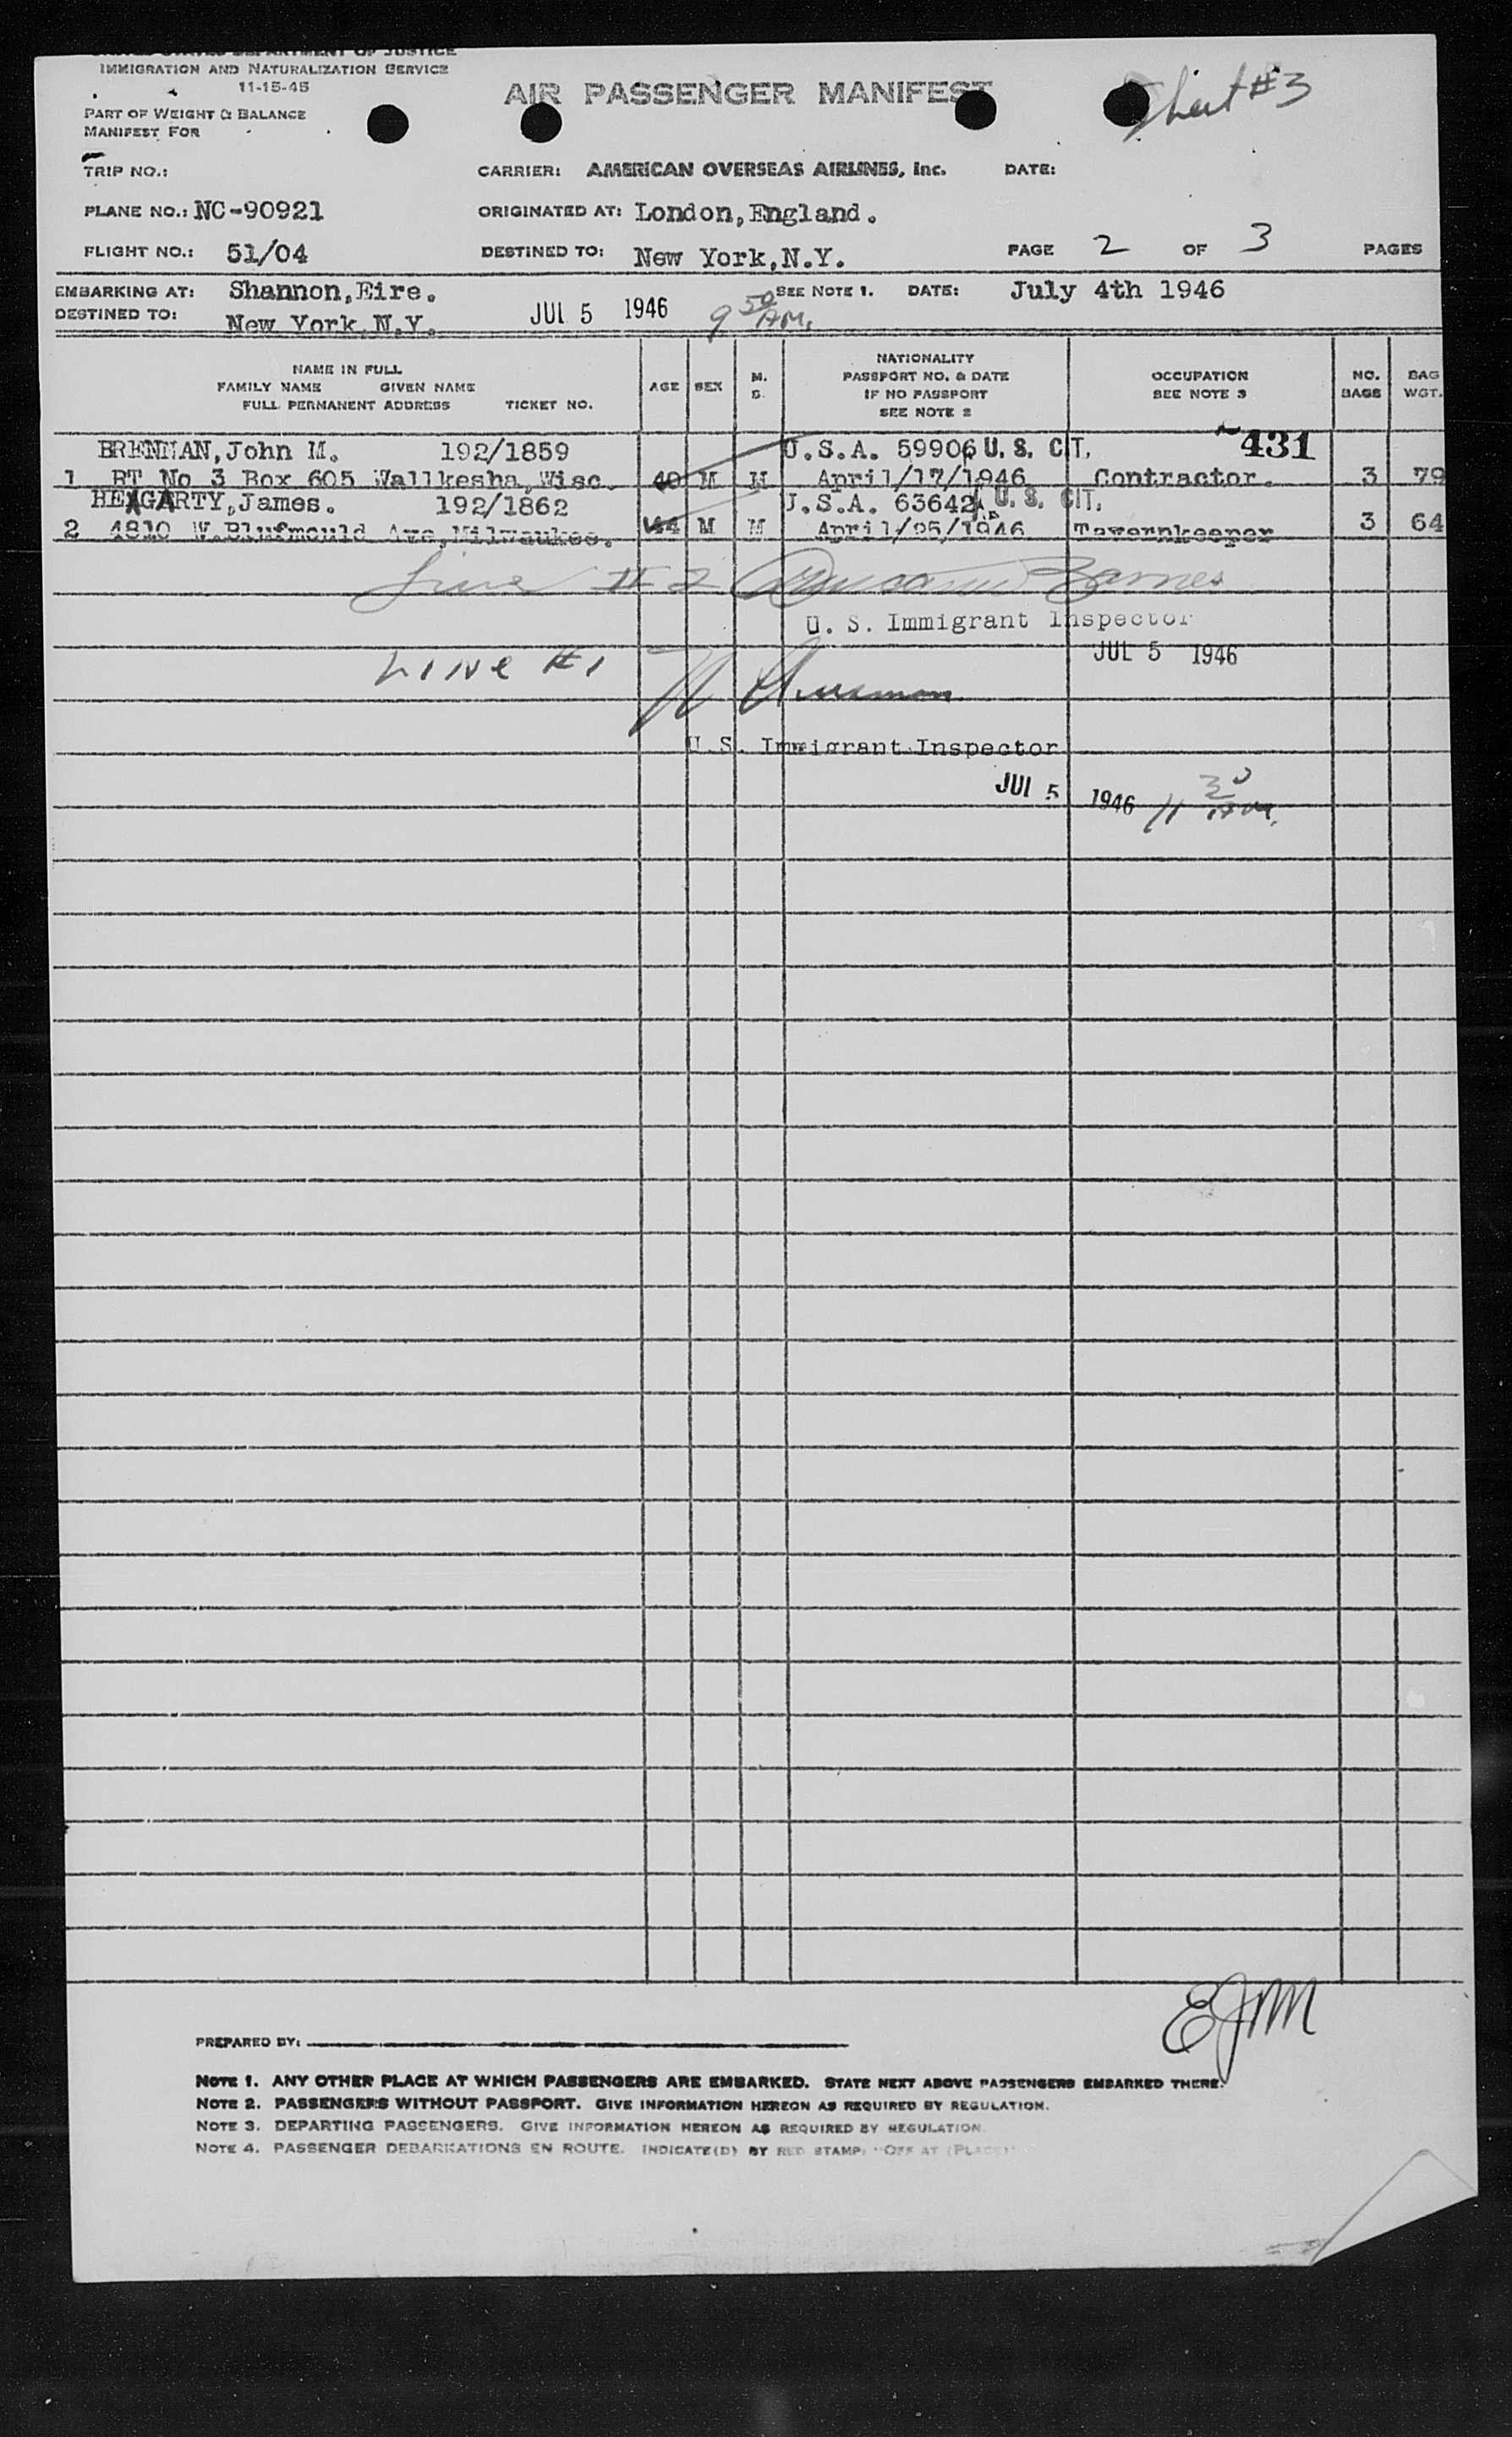 UNITED STATES DEPARTMENT OF JUSTICE
IMMIGRATION AND NATURALIZATION SERVICE
11-15-45
AIR PASSENGER MANIFEST
Sheet #3
PART OF WEIGHT & BALANCE
MANIFEST FOR
TRIP NO.: CARRIER: AMERICAN OVERSEAS AIRLINES, Inc. DATE:
PLANE NO.: NC-90921 ORIGINATED AT: London, England.
FLIGHT NO.: 51/04 DESTINED TO: New York, N.Y. PAGE 2 OF 3 PAGES
EMBARKING AT: Shannon, Eire. SEE NOTE 1. DATE: July 4th 1946
DESTINED TO: New York, N.Y. JUL 5 1946 9 50 AM.
NAME IN FULL
FAMILY NAME GIVEN NAME
FULL PERMANENT ADDRESS TICKET NO.
AGE SEX M. S.
NATIONALITY
PASSPORT NO. & DATE
IF NO PASSPORT
SEE NOTE 2
OCCUPATION
SEE NOTE 3
NO. BAGS
BAG WGT.
BRENNAN, John M. 192/1859 U.S.A. 59906 U. S. CIT. 431
1 RT No 3 Box 605 Wallkesha, Wisc. 40 M M April/17/1946 Contractor. 3 79
HEAGARTY, James. 192/1862 U.S.A. 63642 U. S. CIT.
2 4810 W. Blufmould Ave, Milwaukee. 44 M M April/25/1946 Tavernkeeper 3 64
Line # 2 Barnes
U. S. Immigrant Inspector
JUL 5 1946
Line #1
U.S. Immigrant Inspector
JUL 5 1946 11 30 AM.
EJM
PREPARED BY:
NOTE 1. ANY OTHER PLACE AT WHICH PASSENGERS ARE EMBARKED. STATE NEXT ABOVE PASSENGERS EMBARKED THERE.
NOTE 2. PASSENGERS WITHOUT PASSPORT. GIVE INFORMATION HEREON AS REQUIRED BY REGULATION.
NOTE 3. DEPARTING PASSENGERS. GIVE INFORMATION HEREON AS REQUIRED BY REGULATION.
NOTE 4. PASSENGER DEBARKATIONS EN ROUTE. INDICATE(D) BY RED STAMP: "OFF AT (PLACE)"